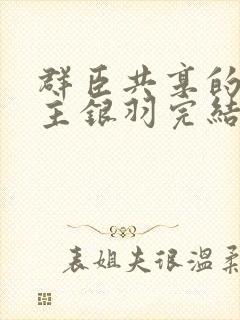 群臣共享的
主银羽完结
表姐夫很温柔